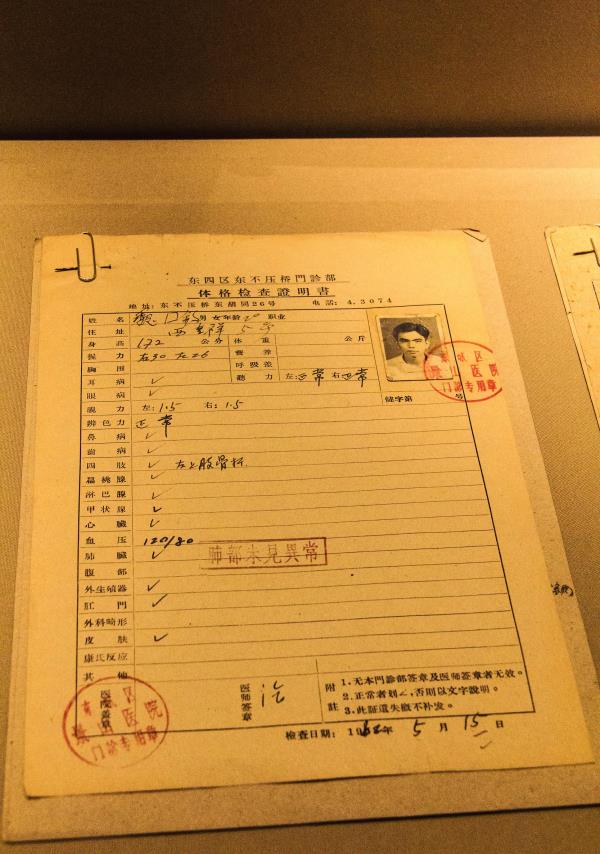 东四区东不压桥門診部
体格检查證明書
地址：东不压桥东胡同26号 电話：4.3074
姓名 男女年龄 20 职业
住址 5号
身高 172 公分 体重 公斤
握力 右30 左26 营养
胸围 呼吸差
耳病 ✓ 聽力 左：正常 右：正常
眼病 ✓ 健字第 号
視力 左：1.5 右：1.5
辨色力 正常
鼻病 ✓
齒病 ✓
四肢 ✓ 左上肢骨折
扁桃腺 ✓
淋巴腺 ✓
甲状腺 ✓
心臟 ✓
血压 120/80
肺臟 ✓ 肺部未見異常
腹部
外生殖器 ✓
肛門 ✓
外科畸形
皮膚 ✓
康氏反应
其他
医院盖章
医师签章
附註
1.无本門診部签章及医师签章者无效。
2.正常者划✓，否則以文字說明。
3.此証遺失概不补发。
检查日期：1962年5月15日
东城区
景山医院
门診专用章
东城区
景山医院
门診专用章